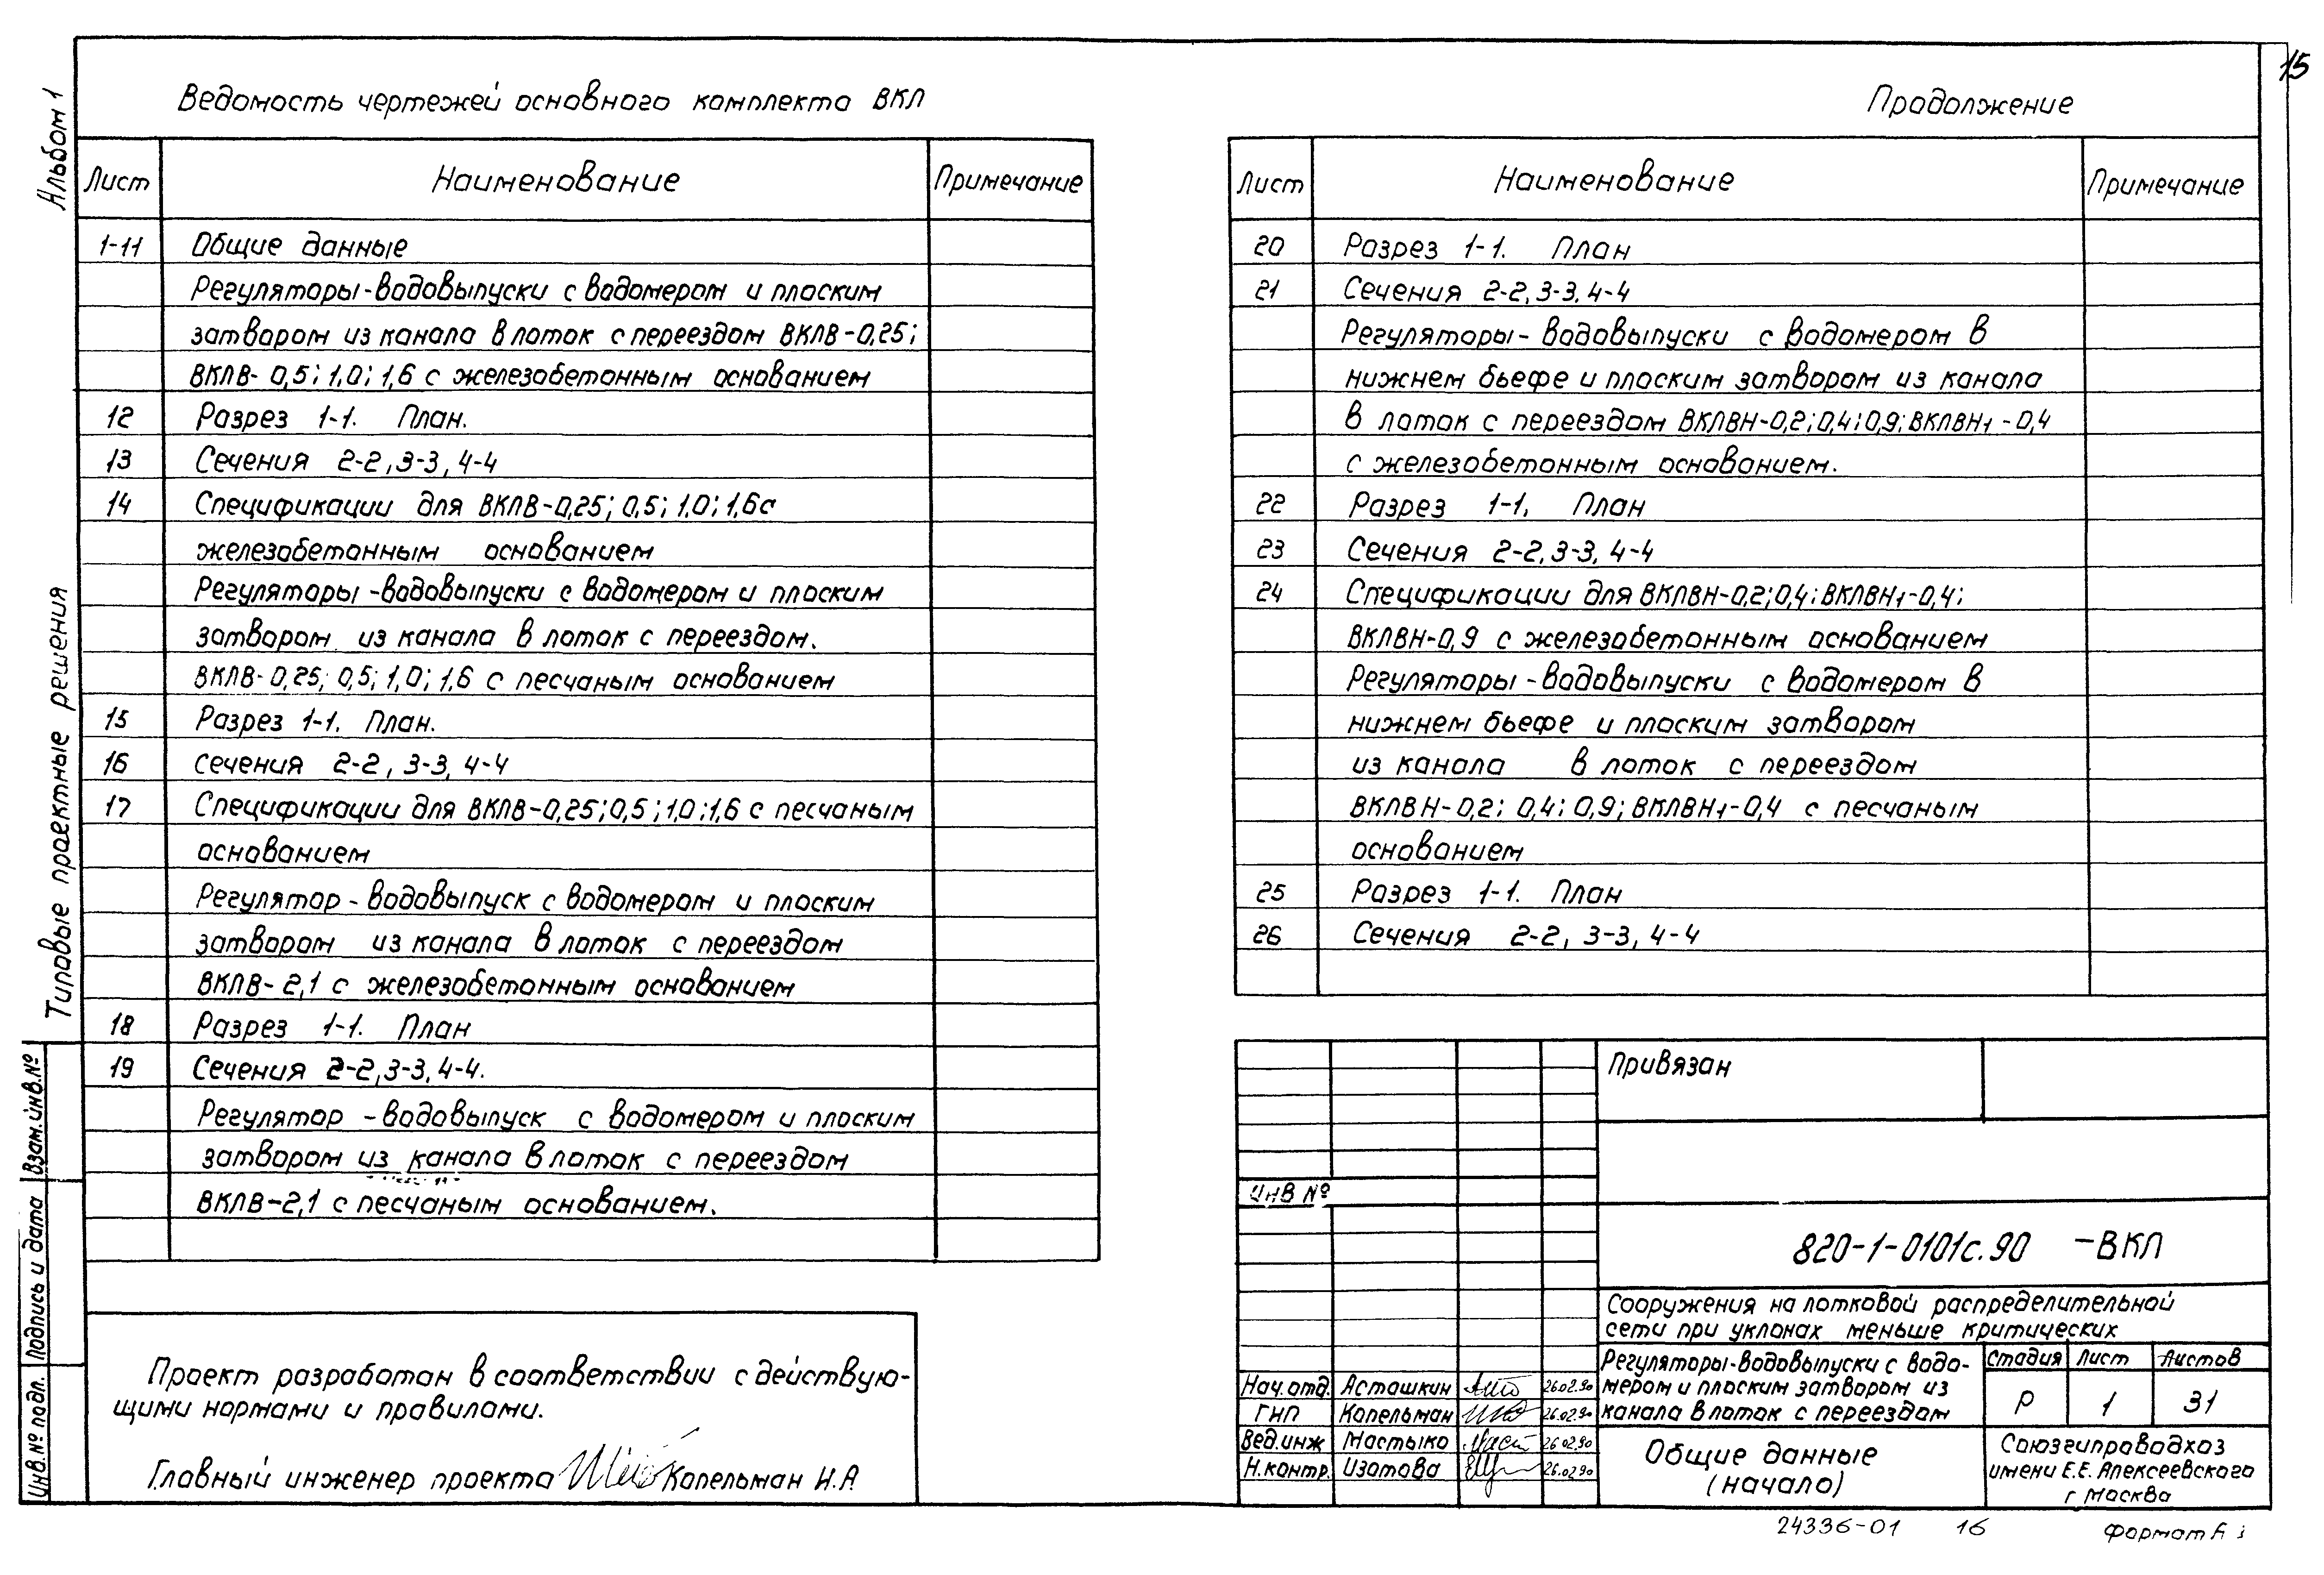 15
Альбом 1
Типовые проектные решения
Взам.инв.№
Подпись и дата
Инв.№ подл.
Ведомость чертежей основного комплекта ВКЛ
Лист Наименование Примечание
1-11 Общие данные
Регуляторы-водовыпуски с водомером и плоским
затвором из канала в лоток с переездом ВКЛВ-0,25;
ВКЛВ-0,5; 1,0; 1,6 с железобетонным основанием
12 Разрез 1-1. План.
13 Сечения 2-2, 3-3, 4-4
14 Спецификации для ВКЛВ-0,25; 0,5; 1,0; 1,6 с
железобетонным основанием
Регуляторы-водовыпуски с водомером и плоским
затвором из канала в лоток с переездом.
ВКЛВ-0,25; 0,5; 1,0; 1,6 с песчаным основанием
15 Разрез 1-1. План.
16 сечения 2-2, 3-3, 4-4
17 Спецификации для ВКЛВ-0,25; 0,5; 1,0; 1,6 с песчаным
основанием
Регулятор-водовыпуск с водомером и плоским
затвором из канала в лоток с переездом
ВКЛВ-2,1 с железобетонным основанием
18 Разрез 1-1. План
19 Сечения 2-2, 3-3, 4-4.
Регулятор-водовыпуск с водомером и плоским
затвором из канала в лоток с переездом
ВКЛВ-2,1 с песчаным основанием.
Проект разработан в соответствии с действую-
щими нормами и правилами.
Главный инженер проекта Капельман И.А
Продолжение
Лист Наименование Примечание
20 Разрез 1-1. План
21 Сечения 2-2, 3-3, 4-4
Регуляторы-водовыпуски с водомером в
нижнем бьефе и плоским затвором из канала
в лоток с переездом ВКЛВН-0,2; 0,4; 0,9; ВКЛВН1-0,4
с железобетонным основанием.
22 Разрез 1-1. План
23 Сечения 2-2, 3-3, 4-4
24 Спецификации для ВКЛВН-0,2; 0,4; ВКЛВН1-0,4;
ВКЛВН-0,9 с железобетонным основанием
Регуляторы-водовыпуски с водомером в
нижнем бьефе и плоским затвором
из канала в лоток с переездом
ВКЛВН-0,2; 0,4; 0,9; ВКЛВН1-0,4 с песчаным
основанием
25 Разрез 1-1. План
26 Сечения 2-2, 3-3, 4-4
Привязан
ИНВ №
820-1-0101с.90 -ВКЛ
Сооружения на лотковой распределительной
сети при уклонах меньше критических
Регуляторы-водовыпуски с водо-
мером и плоским затвором из
канала в лоток с переездом
Стадия Лист Листов
Р 1 31
Нач.отд. Асташкин 26.02.90
ГИП Капельман 26.02.90
Вед.инж Мастыко 26.02.90
Н.контр. Изотова 26.02.90
Общие данные
(начало)
Союзгипроводхоз
имени Е.Е. Алексеевского
г. Москва
24336-01 16 Формат А3